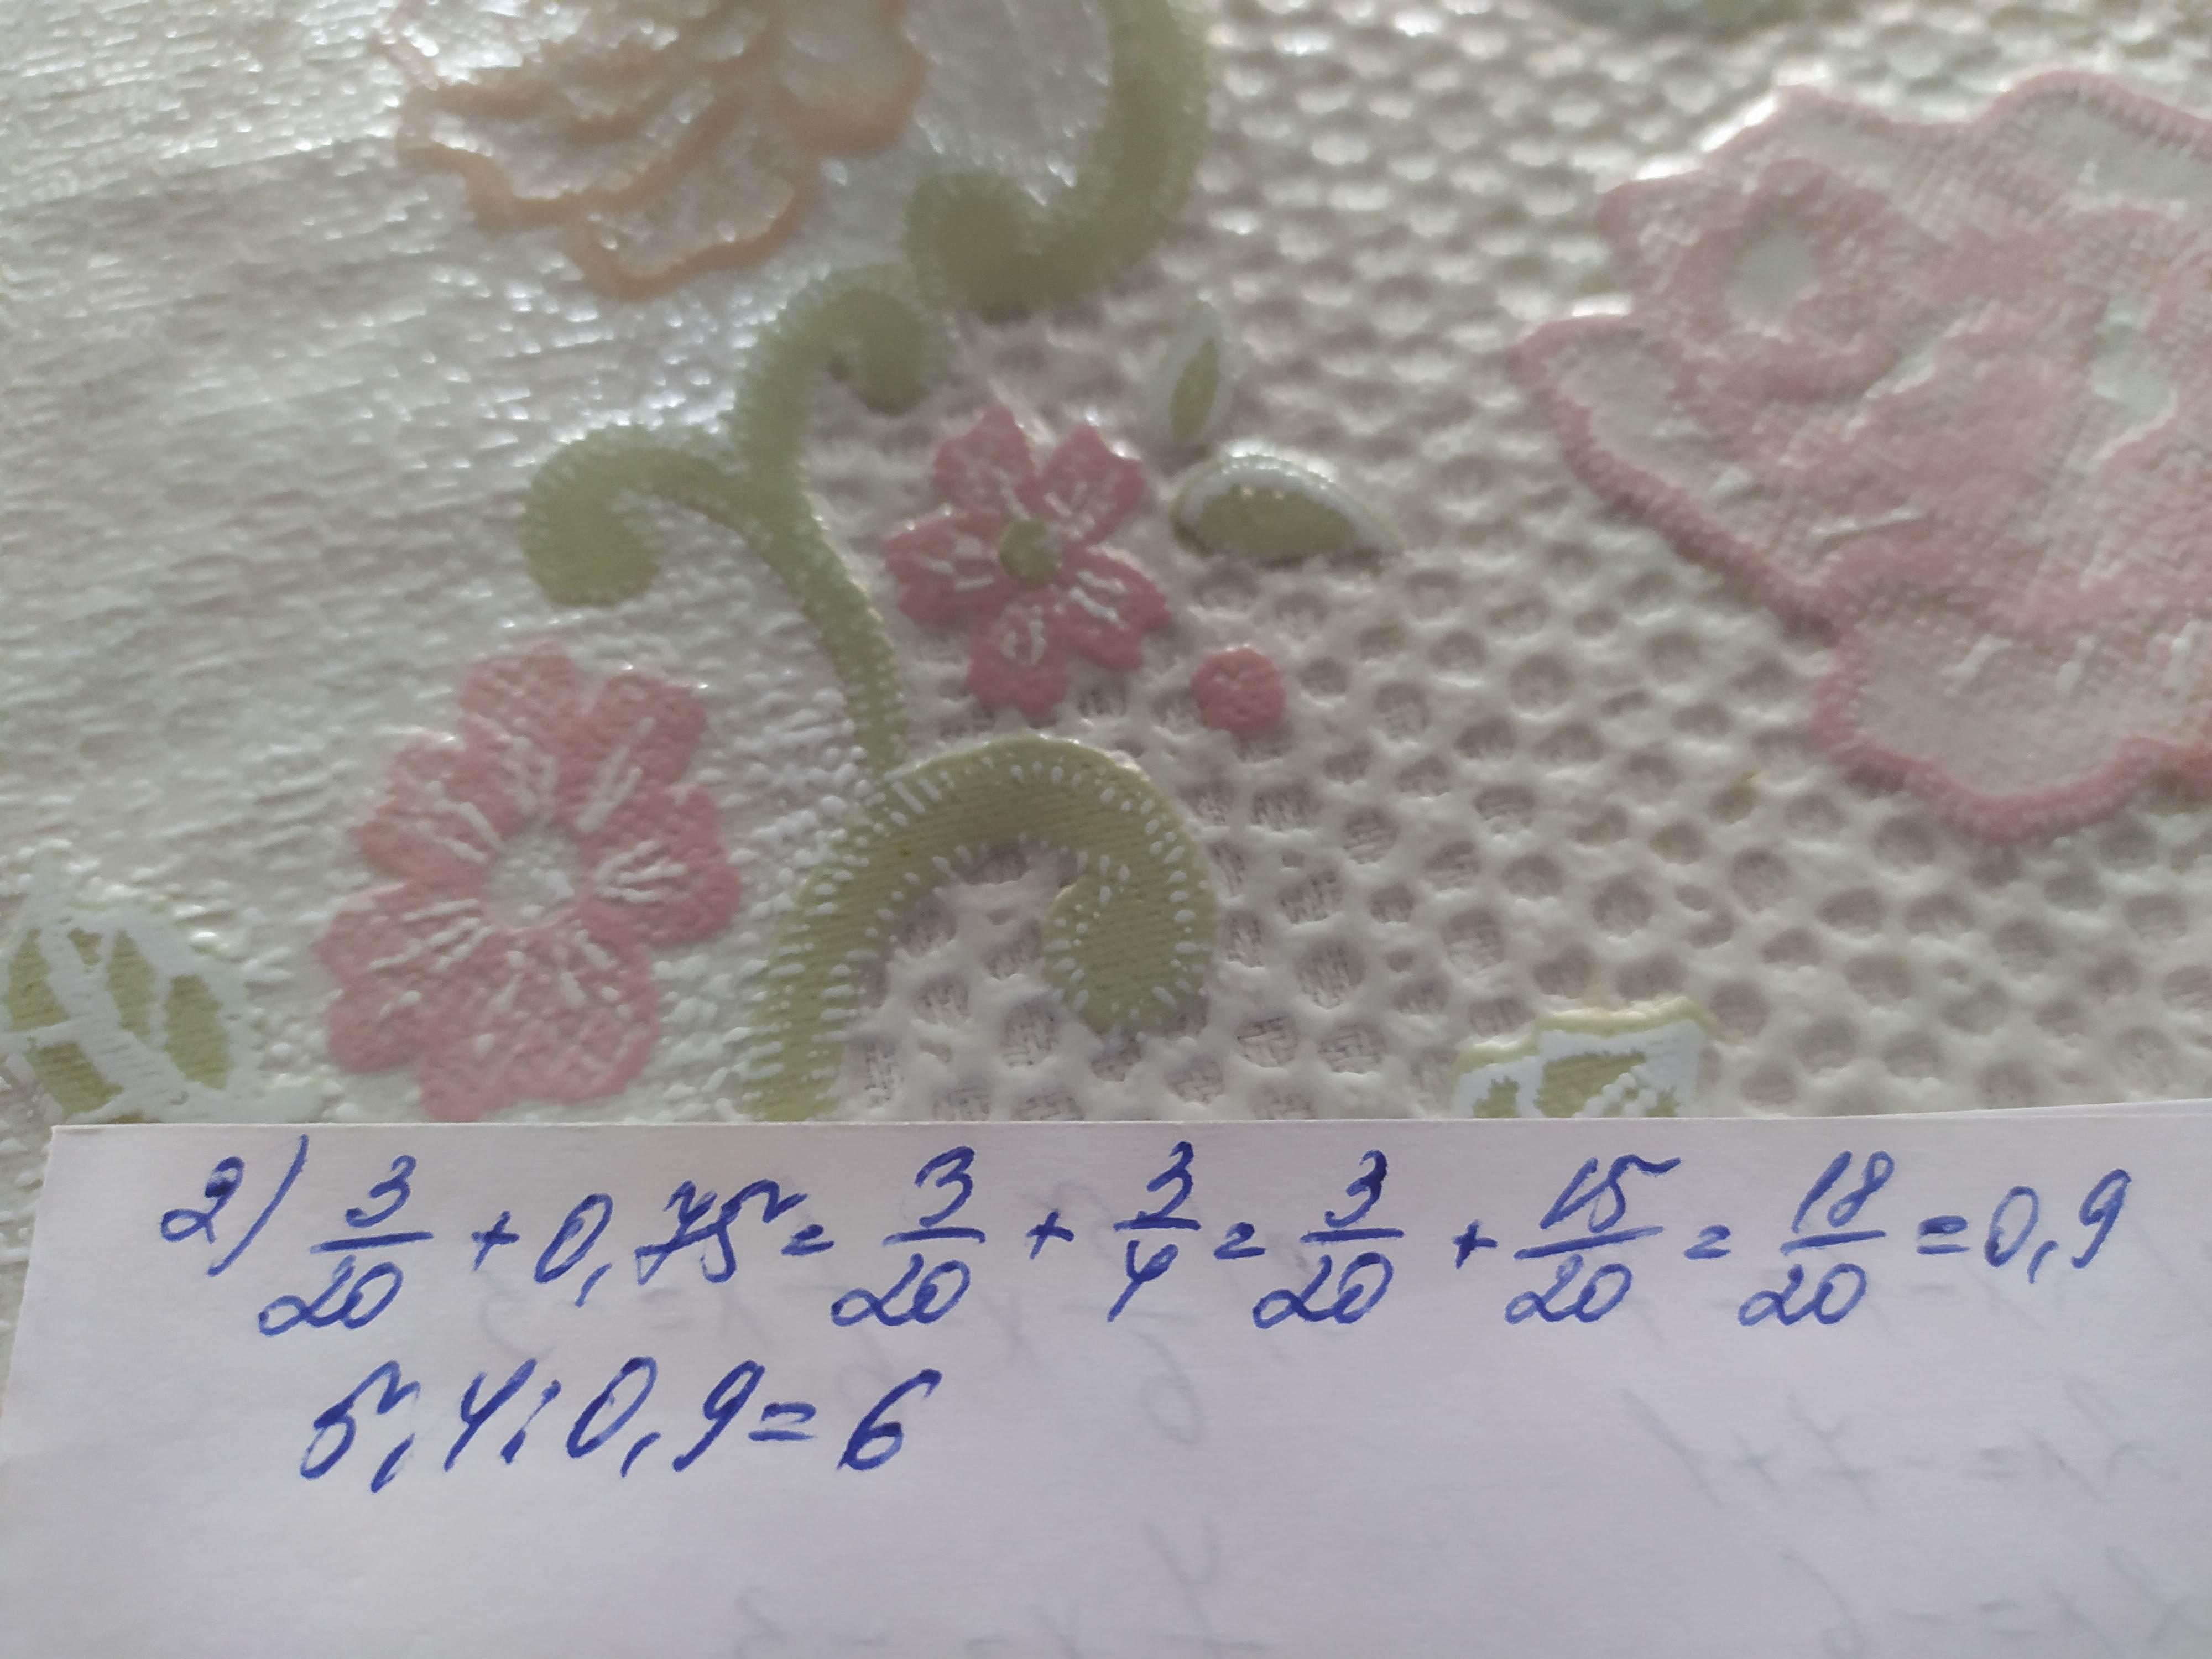 2) 3/20 + 0,75 = 3/20 + 3/4 = 3/20 + 15/20 = 18/20 = 0,9
5,4 : 0,9 = 6